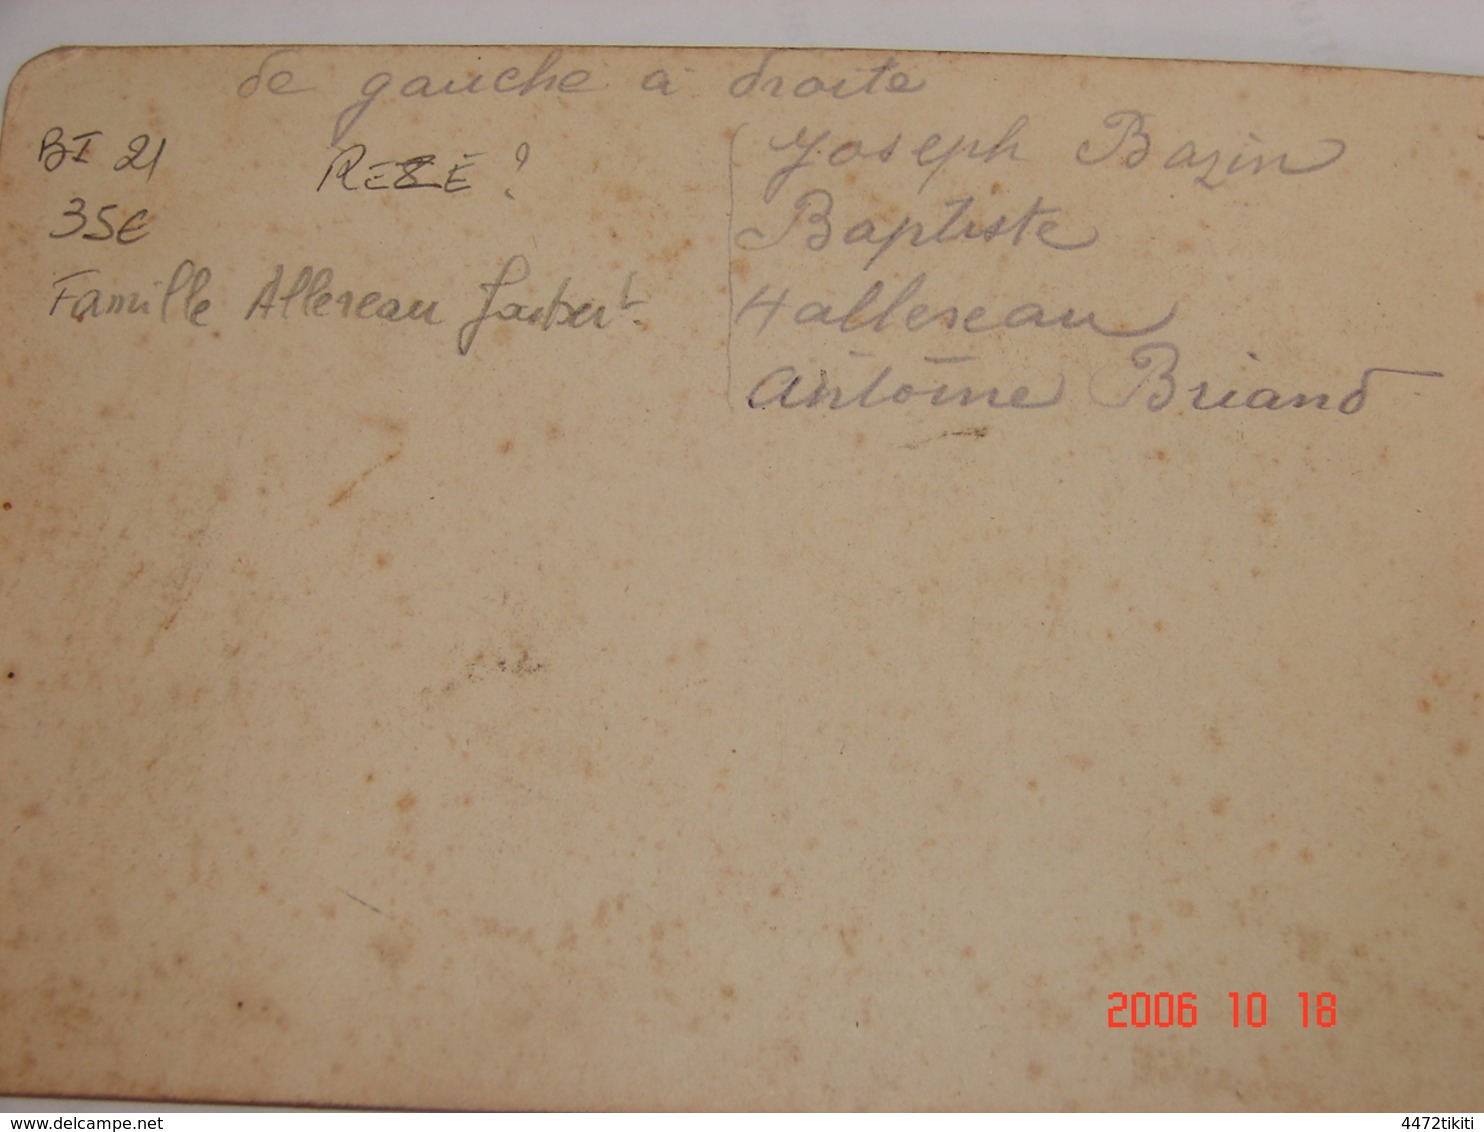 de gauche à droite
Joseph Bazin
Baptiste
Hallereau
Antoine Briand
BI 21
REZÉ ?
35€
Famille Allereau Jaubert.
2006 10 18
www.delcampe.net
4472tikiti